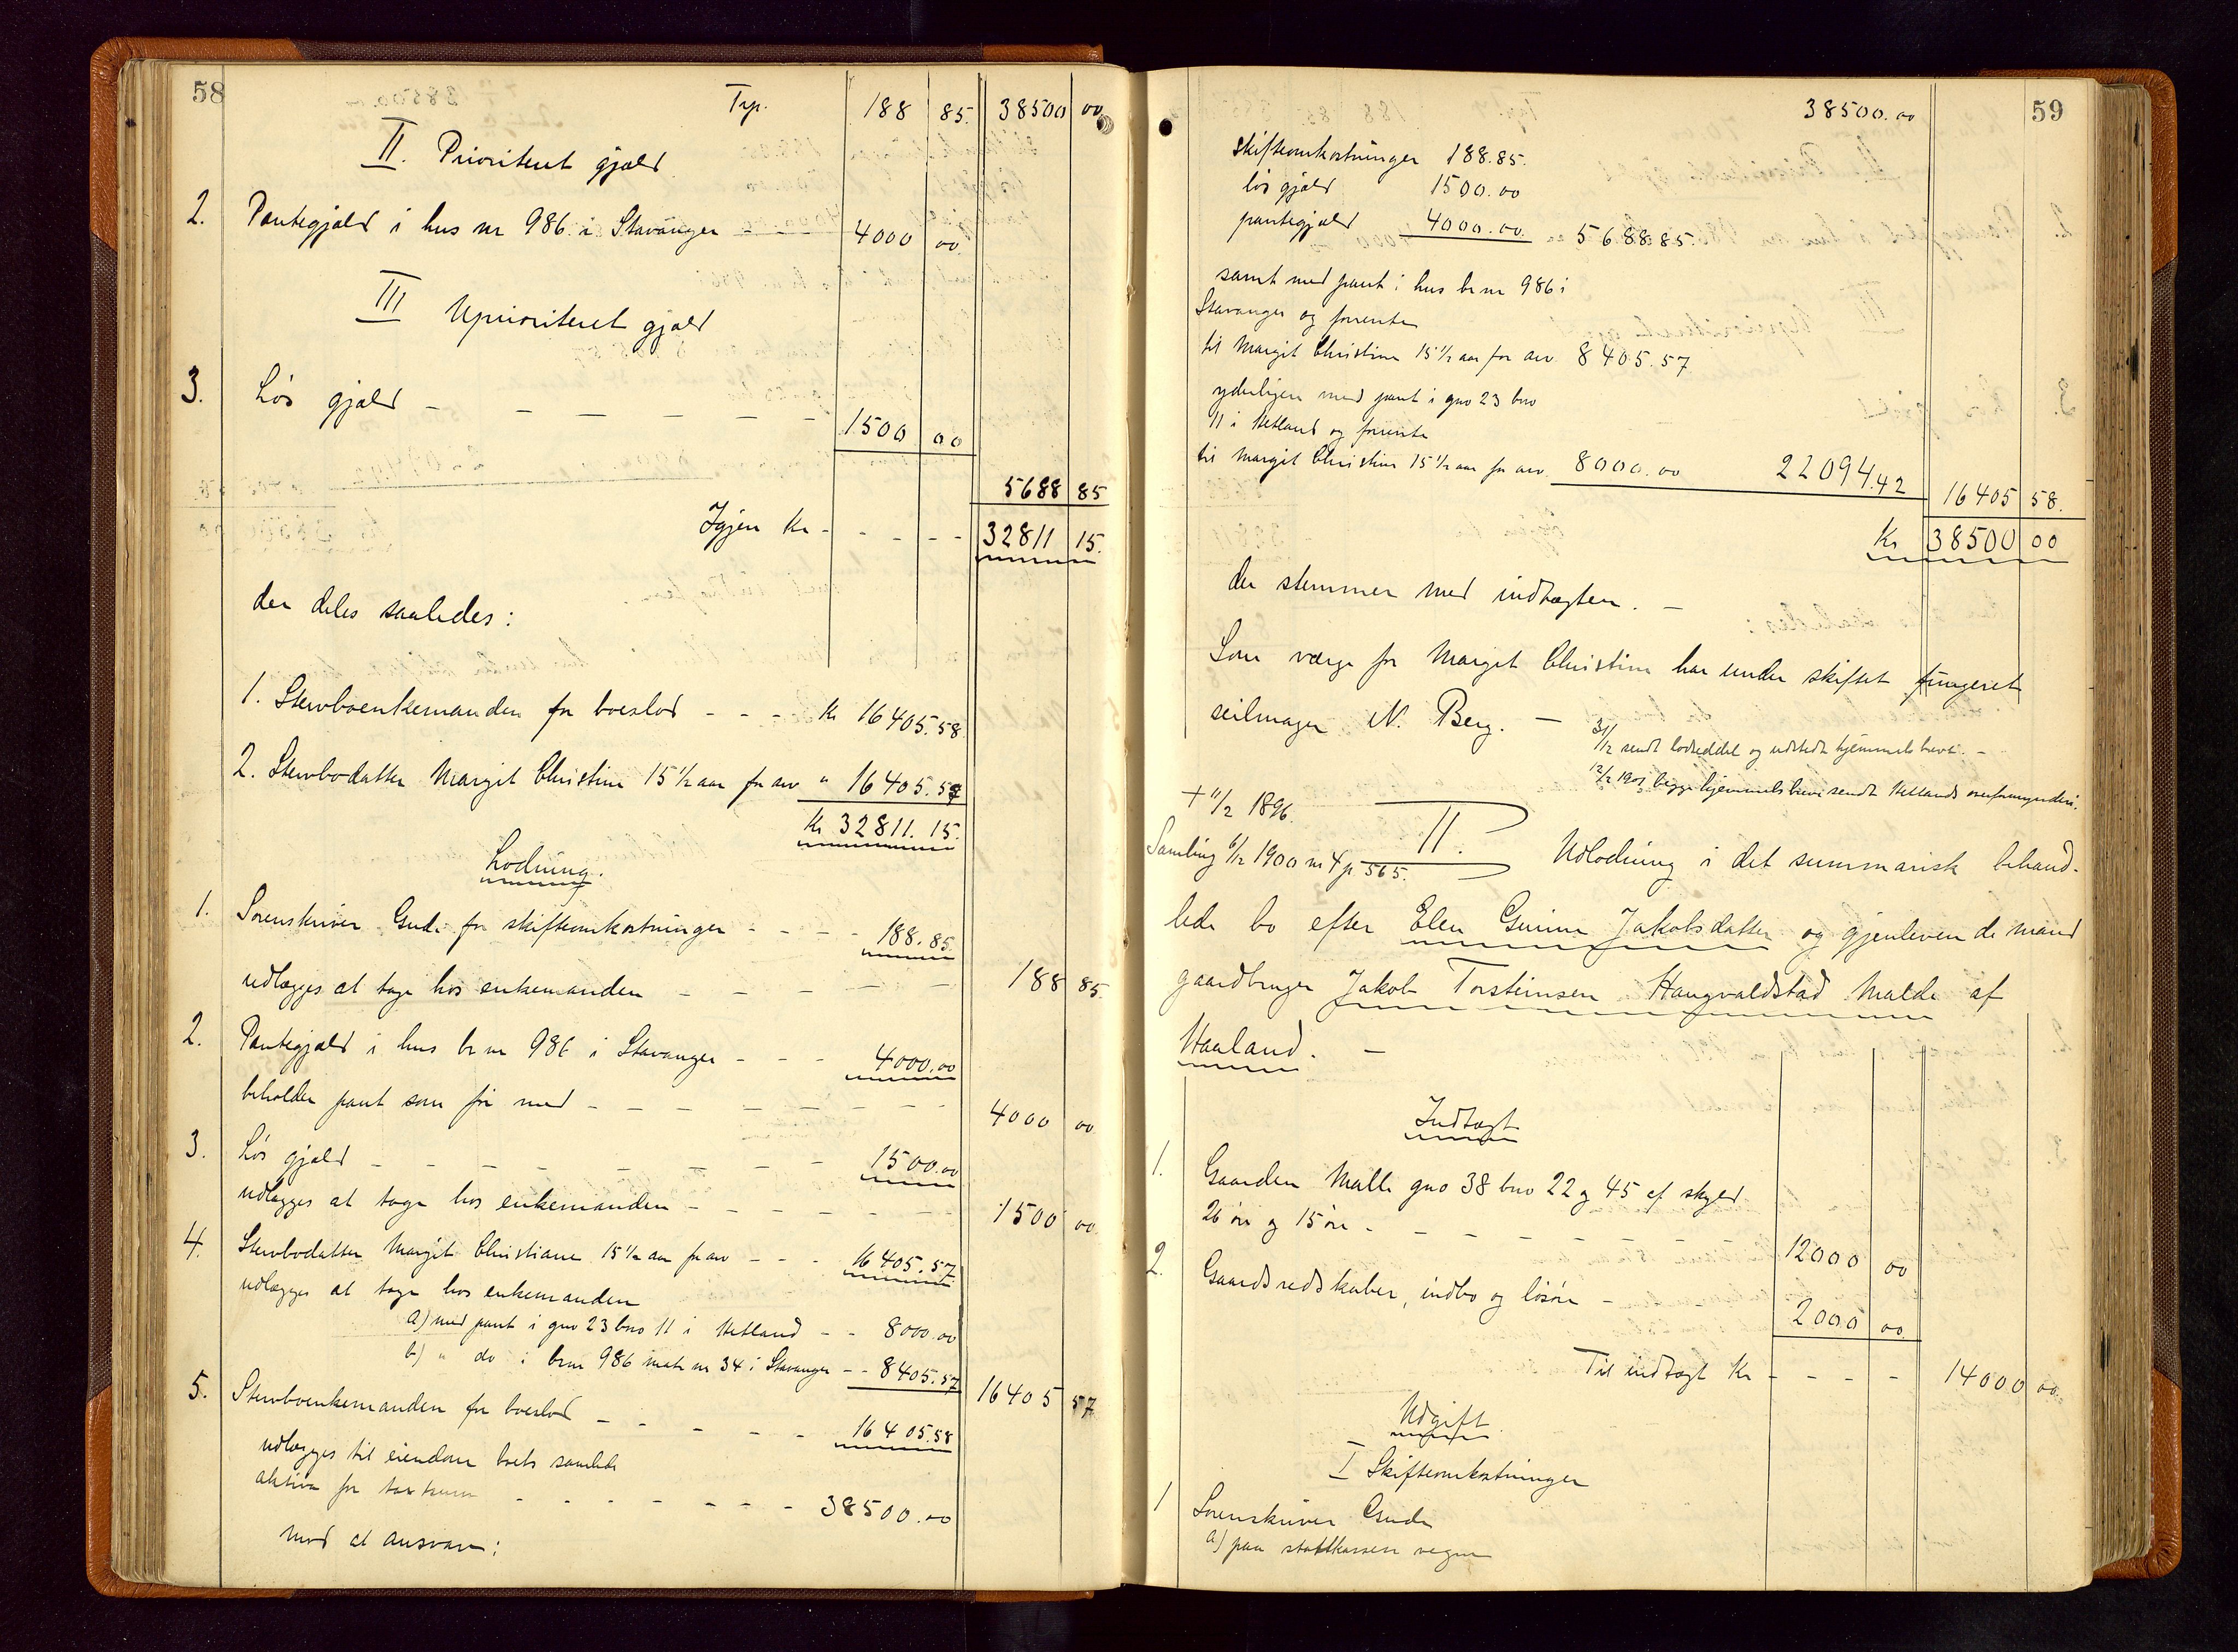 58
Trp. 188 85. 38500 00
II. Prioriteret gjæld
2. Pantegjæld i hus nr 986 i Stavanger - - 4000 00.
III Uprioriteret gjæld
3. Løs gjæld - - - - - - 1500 00
5688 85
Igjen Kr - - - - - 32811 15.
der deles saaledes:
1. Stervboenkemanden for boeslod - - - Kr 16405.58
2. Stervbodatter Margit Christine 15 1/2 aar for arv " 16405.57
Kr 32811.15.
Lodning.
1. Sorenskriver Gude for skifteomkostninger - - - - 188.85.
udlægges at tage hos enkemanden - - - - - 188 85.
2. Pantegjæld i hus br nr 986 i Stavanger - - - 4000.00
beholder pant som før med - - - - - - - - 4000 00
3. Løs gjæld - - - - - - - - 1500.00
udlægges at tage hos enkemanden - - - - - - - 1500 00.
4. Stervbodatter Margit Christiane 15 1/2 aar for arv - - - 16405.57
udlægges at tage hos enkemanden
a) med pant i gno 23 bno 11 i Hetland - - 8000.00
b) " do i br nr 986 matr nr 34 i Stavanger - - 8405.57 16405 57
5. Stervboenkemanden for boeslod - - - - - 16405.58
udlægges til eiendom boets samlede
aktiva for taxtsum - - - - - - - 38500.00
mod at ansvare:
59
38500.00
skifteomkostninger 188.85.
løs gjæld 1500.00
pantegjæld 4000.00. 5688.85.
samt med pant i hus br nr 986 i
Stavanger og forrente
til Margit Christine 15 1/2 aar for arv 8405.57
yderligere med pant i gno 23 bno
11 i Hetland og forrente
til Margit Christine 15 1/2 aar for arv. 8000.00 22094.42 16405 58.
Kr 38500 00
der stemmer med indtægten. -
Som værge for Margit Christine har under skiftet fungeret
seilmager N. Berg. -
31/12 sendt lodseddel og udstedt hjemmelsbrev. -
12/2 1901 begge hjemmelsbreve sendt Hetlands overformynderi.
+ 11/2 1896.
Samling 6/12 1900 nr 4 p 565.
II. Udlodning i det summarisk behand-
lede bo efter Elen Gurine Jakobsdatter og gjenlevende mand
gaardbruger Jakob Torsteinsen Haugvaldstad Malde af
Haaland. -
Indtægt
1. Gaarden Malle gno 38 bno 22 og 45 af skyld
26 øre og 15 øre - - - - - - - 12000 00
2. Gaardsredskaber, indbo og løsøre - 2000 00.
Til indtægt Kr - - - - 14000 00.
Udgift
I Skifteomkostninger
1 Sorenskriver Gude
a) paa statskassens vegne